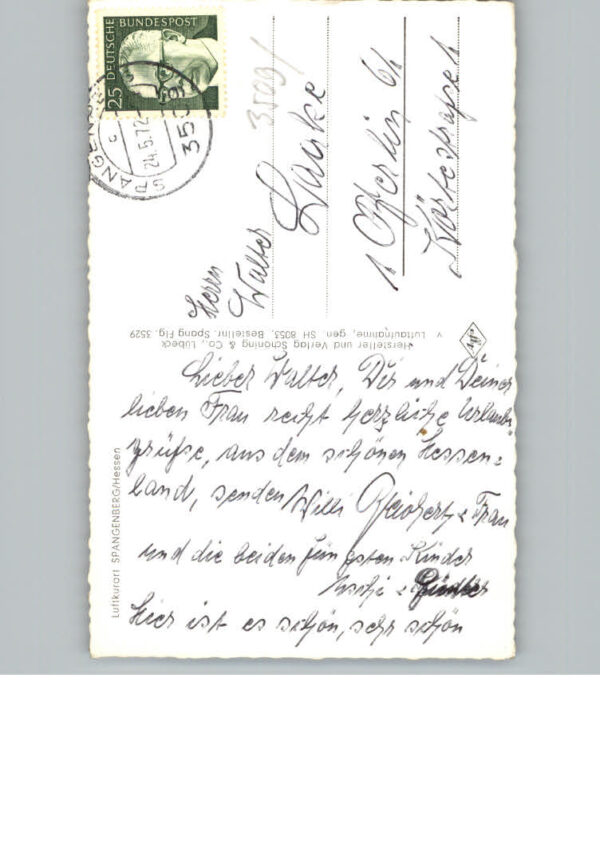 DEUTSCHE
BUNDESPOST
25
SPANGENBERG
24.5.72
3509
3509/
Herrn
Walter
1 Berlin 61
Körtestraße
Hersteller und Verlag Schöning & Co., Lübeck
v Luftaufnahme, gen. SH 8053, Bestellnr. Spang Flg. 3529
Luftkurort SPANGENBERG/Hessen
Lieber Walter, Dir und Deiner
lieben Frau recht herzliche Urlaubs-
grüße, aus dem schönen Hessen=
land, senden Willi & Frau
und die beiden jüngsten Kinder
& Günter
Hier ist es schön, sehr schön